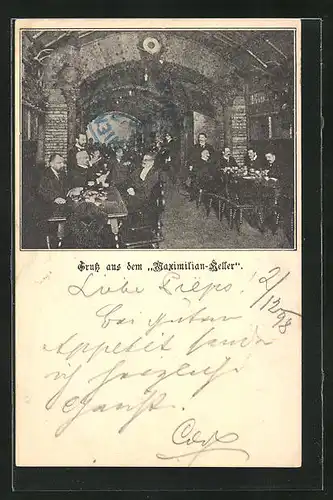 Gruß aus dem „Maximilian-Keller“.
Liebe Pieps!
2/12 98
Bei guten
Appetit sende
ich herzliche